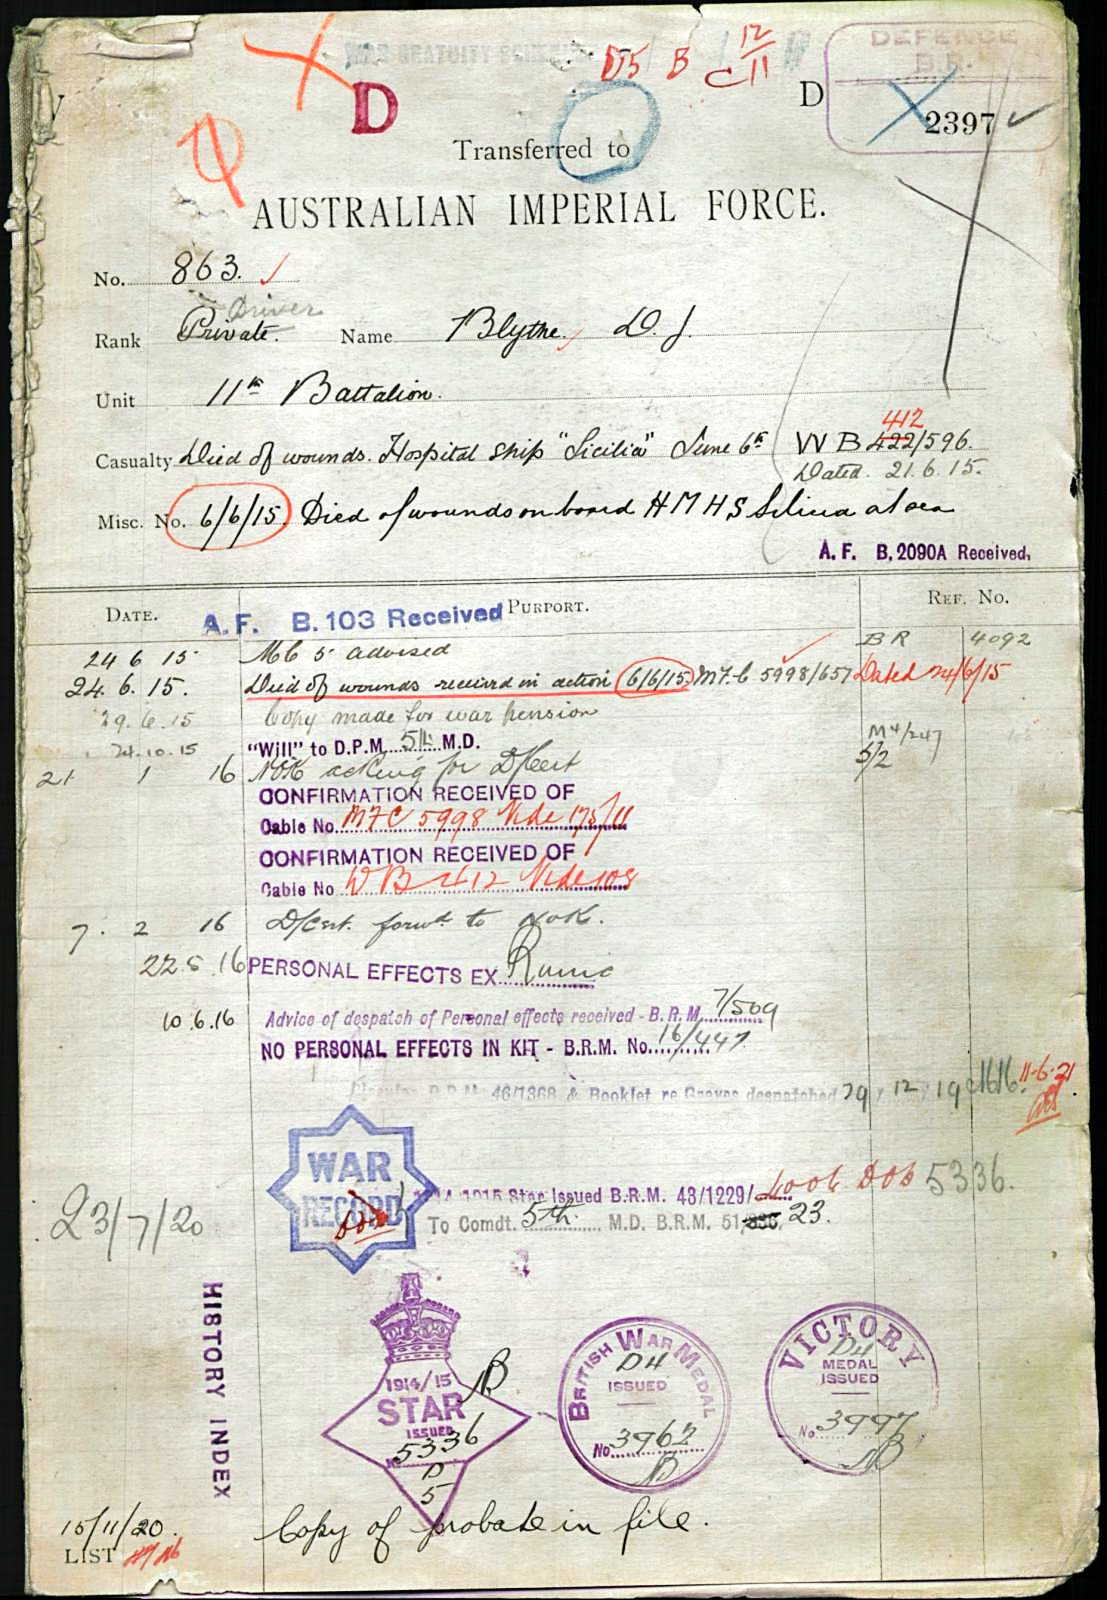 WAR GRATUITY SCHEDULE
D5 B C 12/11
DEFENCE
B.R.
D
D
2397
Transferred to
AUSTRALIAN IMPERIAL FORCE.
No. 863.
Driver
Rank Private. Name Blythe, D. J.
Unit 11th Battalion.
412
Casualty Died of wounds. Hospital ship "Sicilia" June 6th W B 422/596.
Dated. 21.6.15.
Misc. No. 6/6/15. Died of wounds on board H M H S Silicia at sea
A. F. B. 2090A Received.
DATE. A. F. B. 103 Received PURPORT. REF. NO.
24 6 15 advised B R 4092
24. 6. 15. Died of wounds received in action 6/6/15 MFC 5998/657 Dated 24/6/15
29. 6. 15 Copy made for war pension
24.10.15 "Will" to D.P.M. 5th M.D. M4/247
5/2
21 1 16 NOK asking for D/Cert
CONFIRMATION RECEIVED OF
Cable No. MFC 5998 Vide 175/11
CONFIRMATION RECEIVED OF
Cable No WB 412 Vide 108
7. 2 16 D/Cert. forwd. to NOK.
22 5. 16 PERSONAL EFFECTS EX
10.6.16 Advice of despatch of Personal effects received - B.R.M. 7/509
NO PERSONAL EFFECTS IN KIT - B.R.M. No. 16/447
B.R.M. 46/1368 & Booklet re Graves despatched 29 / 12 / 19 11-6-21
WAR
RECORD
1914 1915 Star Issued B.R.M. 43/1229/ 5336.
23/7/20
To Comdt. 5th M.D. B.R.M. 51/ 23.
HISTORY INDEX
1914/15
STAR
ISSUED
5336
D
5
BRITISH WAR MEDAL
D4
ISSUED
No 3962
VICTORY
D4
MEDAL
ISSUED
No. 3997
15/11/20. Copy of probate in file.
LIST